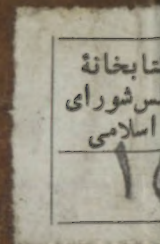 تابخانهٔ
س شورای
اسلامی
۱۵